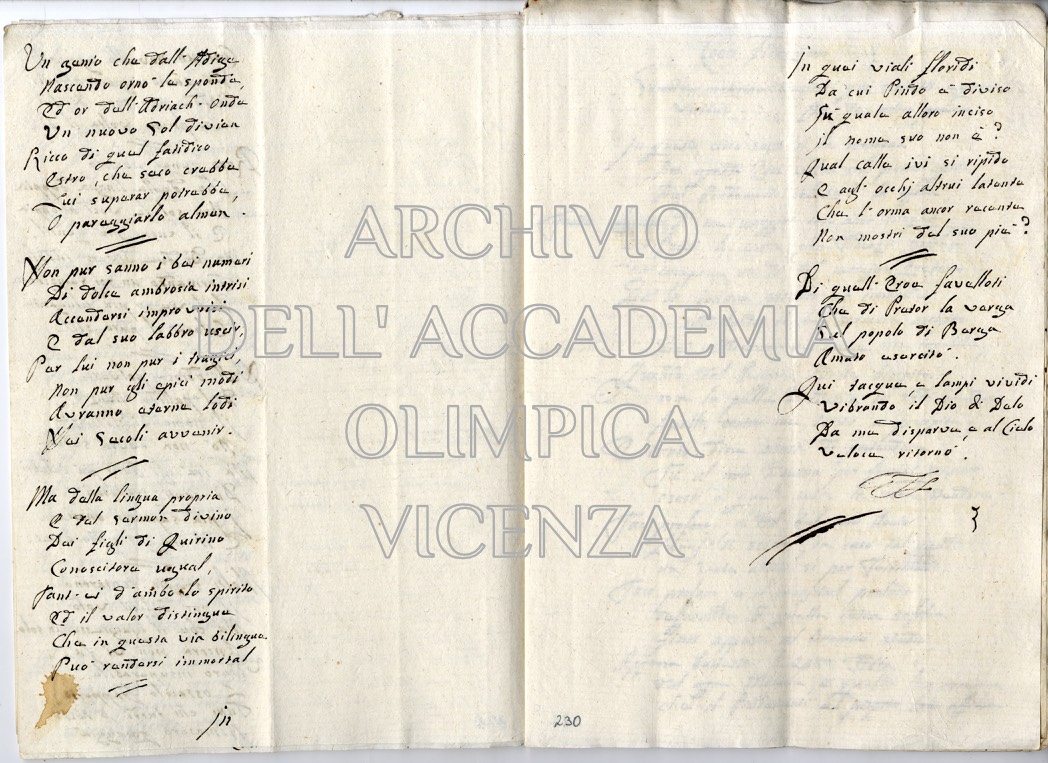 Un genio che dall' Adige
Nascendo ornò la sponda,
Ed or dell' Adriach' onda
Un nuovo Sol divien
Ricco di quel fatidico
Estro, che seco crebbe
Lui superar potrebbe,
O pareggiarlo almen.
Non pur sanno i bei numeri
Di dolce ambrosia intrisi
Accendersi improvvisi
E dal suo labbro uscir,
Per lui non pur i tragici,
Non pur gli epici modi
Avranno eterne lodi
Nei secoli avvenir.
Ma della lingua propria
E del sermon divino
Dei figli di Quirino
Conoscitore ugual,
Tant' ei d'ambo lo spirito
Ed il valor distingue
Che in questa via bilingue
Può rendersi immortal
In
In quai viali floridi
Da cui Pindo è diviso
Su quale alloro inciso
il nome suo non è?
Qual calle ivi si ripido
E agl' occhj altrui latente
Che l' orma ancor recente
Non mostri del suo piè?
Di quell' Eroe favellosi
Che di Pretor la verga
Sul popolo di Berga
Amato esercitò.
Qui tacque, e lampi vividi
Vibrando il Dio di Delo
Da me disparve, e al Cielo
veloce ritornò.
230
ARCHIVIO
DELL' ACCADEMIA
OLIMPICA
VICENZA